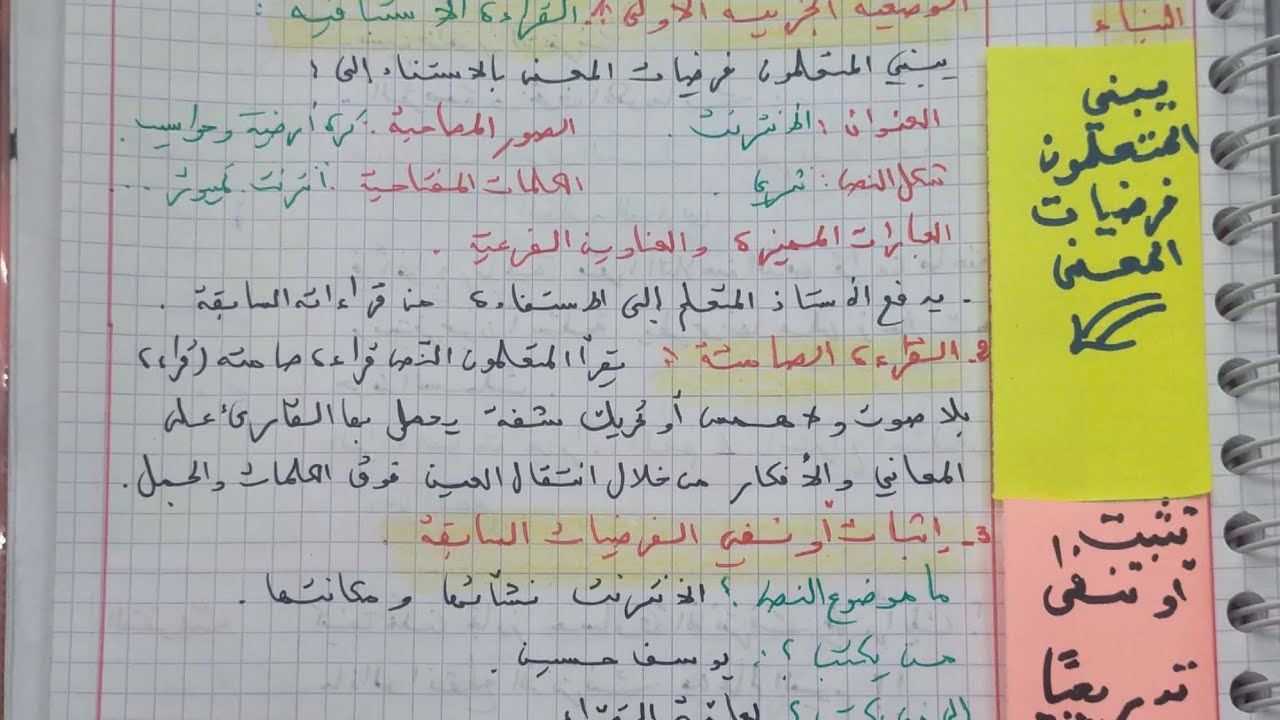 البناء
الوضعية الجزئية الأولى 1. القراءة الاستباقية :
يبني المتعلمون فرضيات المعنى بالاستناد إلى :
العنوان : الانترنت . الصور المصاحبة : كرة أرضية وحواسيب .
شكل النص : نثري . الكلمات المفتاحية . أنترنت كمبيوتر ...
العبارات المميزة والعناوين الفرعية .
- يدفع الأستاذ المتعلم إلى الاستفادة من قراءاته السابقة .
2- القراءة الصامتة : يقرأ المتعلمون النص قراءة صامته (قراءة
بلا صوت ولا همس أو تحريك شفة يحصل بها القارئ على
المعاني والأفكار من خلال انتقال العين فوق الكلمات والجمل .
3- إثبات أو نفي الفرضيات السابقة .
ما موضوع النص ؟ الانترنت نشأتها ومكانتها .
من يكتب ؟ : يوسف حسين .
لمن يكتب ؟ لعامة القراء
يبني
المتعلمون
فرضيات
المعنى
تثبيت
أو تنفي
تدريجيًا